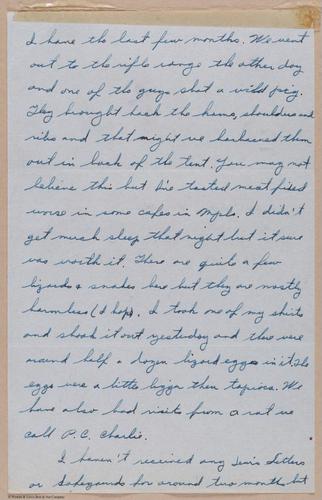 I have the last few months. We went
out to the rifle range the other day
and one of the guys shot a wild pig.
They brought back the hams, shoulders and
ribs and that night we barbecued them
out in back of the tent. You may not
believe this but I've tasted meat fixed
worse in some cafes in Mpls. I didn't
get much sleep that night but it sure
was worth it. There are quite a few
lizards & snakes here but they are mostly
harmless (I hope). I took one of my shirts
and shook it out yesterday and there were
around half a dozen lizard eggs in it. The
eggs were a little bigger then tapioca. We
have also had visits from a rat we
call P. C. Charlie.
I haven't received any News Letters
or Safeguards for around two months but